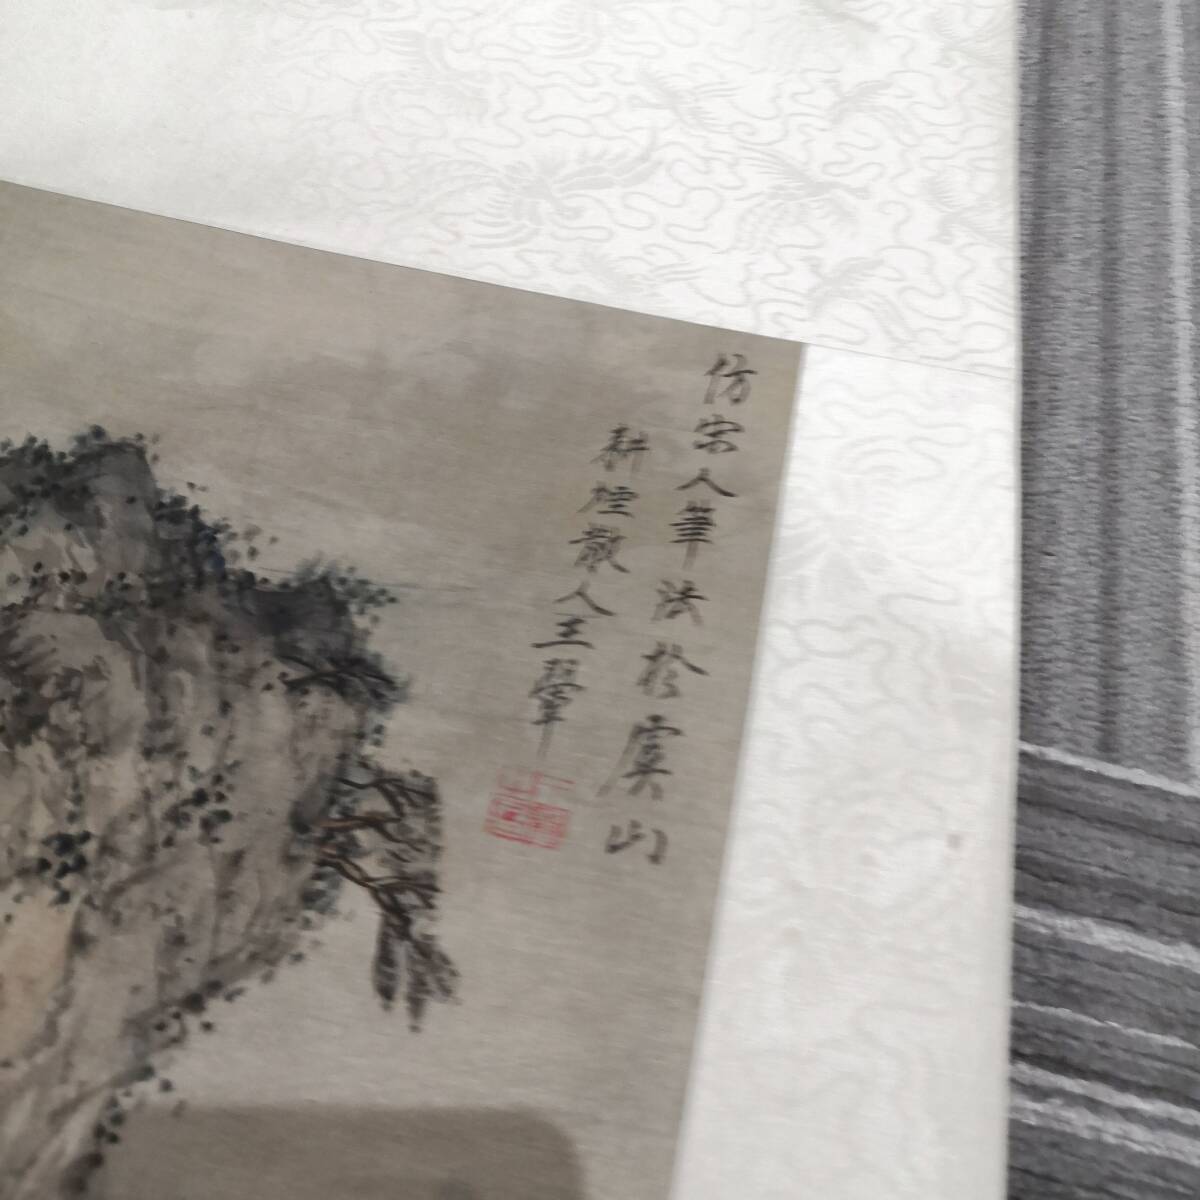 仿宋人筆法於虞山
耕煙散人王翬